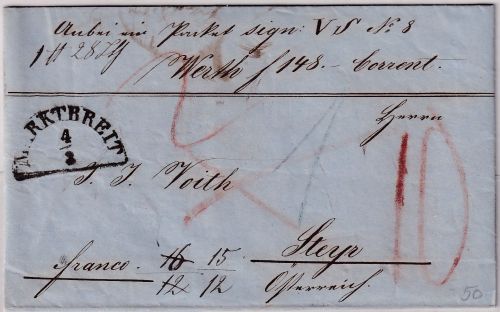 Anbei ein Paket sign: VS No 8
1 ℔ 28
Werth f 148.- Corrent.
Herrn
MARKTBREIT
4
3
J. J. Voith
10
franco
16 15
12 12
Steyr
Österreich.
50